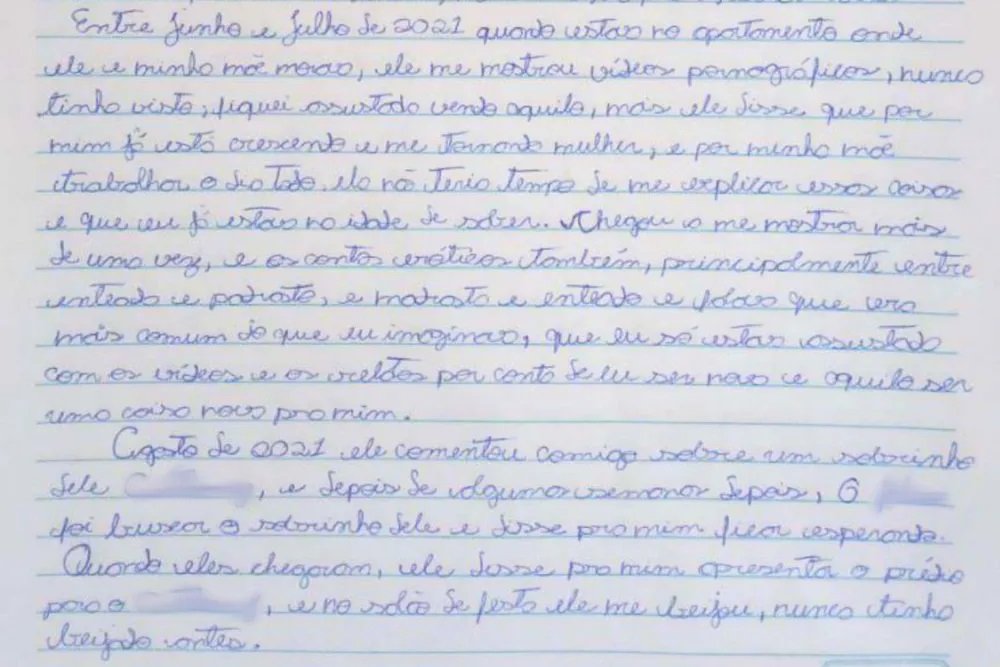 Entre junho e julho de 2021 quando estava no apartamento onde
ele e minha mãe morava, ele me mostrou vídeos pornográficos, nunca
tinha visto, fiquei assustada vendo aquilo, mais ele disse que por
mim já está crescendo e me tornando mulher, e por minha mãe
trabalhar o dia todo, ela não teria tempo de me explicar essas coisas
e que eu já estava na idade de saber. Chegou a me mostrar mais
de uma vez, e os contos eróticos também, principalmente entre
enteada e padrasto, e madrasta e enteado e falava que era
mais comum do que eu imaginava, que eu só estava assustada
com os vídeos e os relatos por conta de eu ser nova e aquilo ser
uma coisa nova pro mim.
Agosto de 2021 ele comentou comigo sobre um sobrinho
dele , e depois de algumas semanas depois, O
foi buscar o sobrinho dele e disse pra mim ficar esperando.
Quando eles chegaram, ele disse pra mim apresenta o prédio
para o , e no salão de festa ele me beijou, nunca tinha
beijado antes.